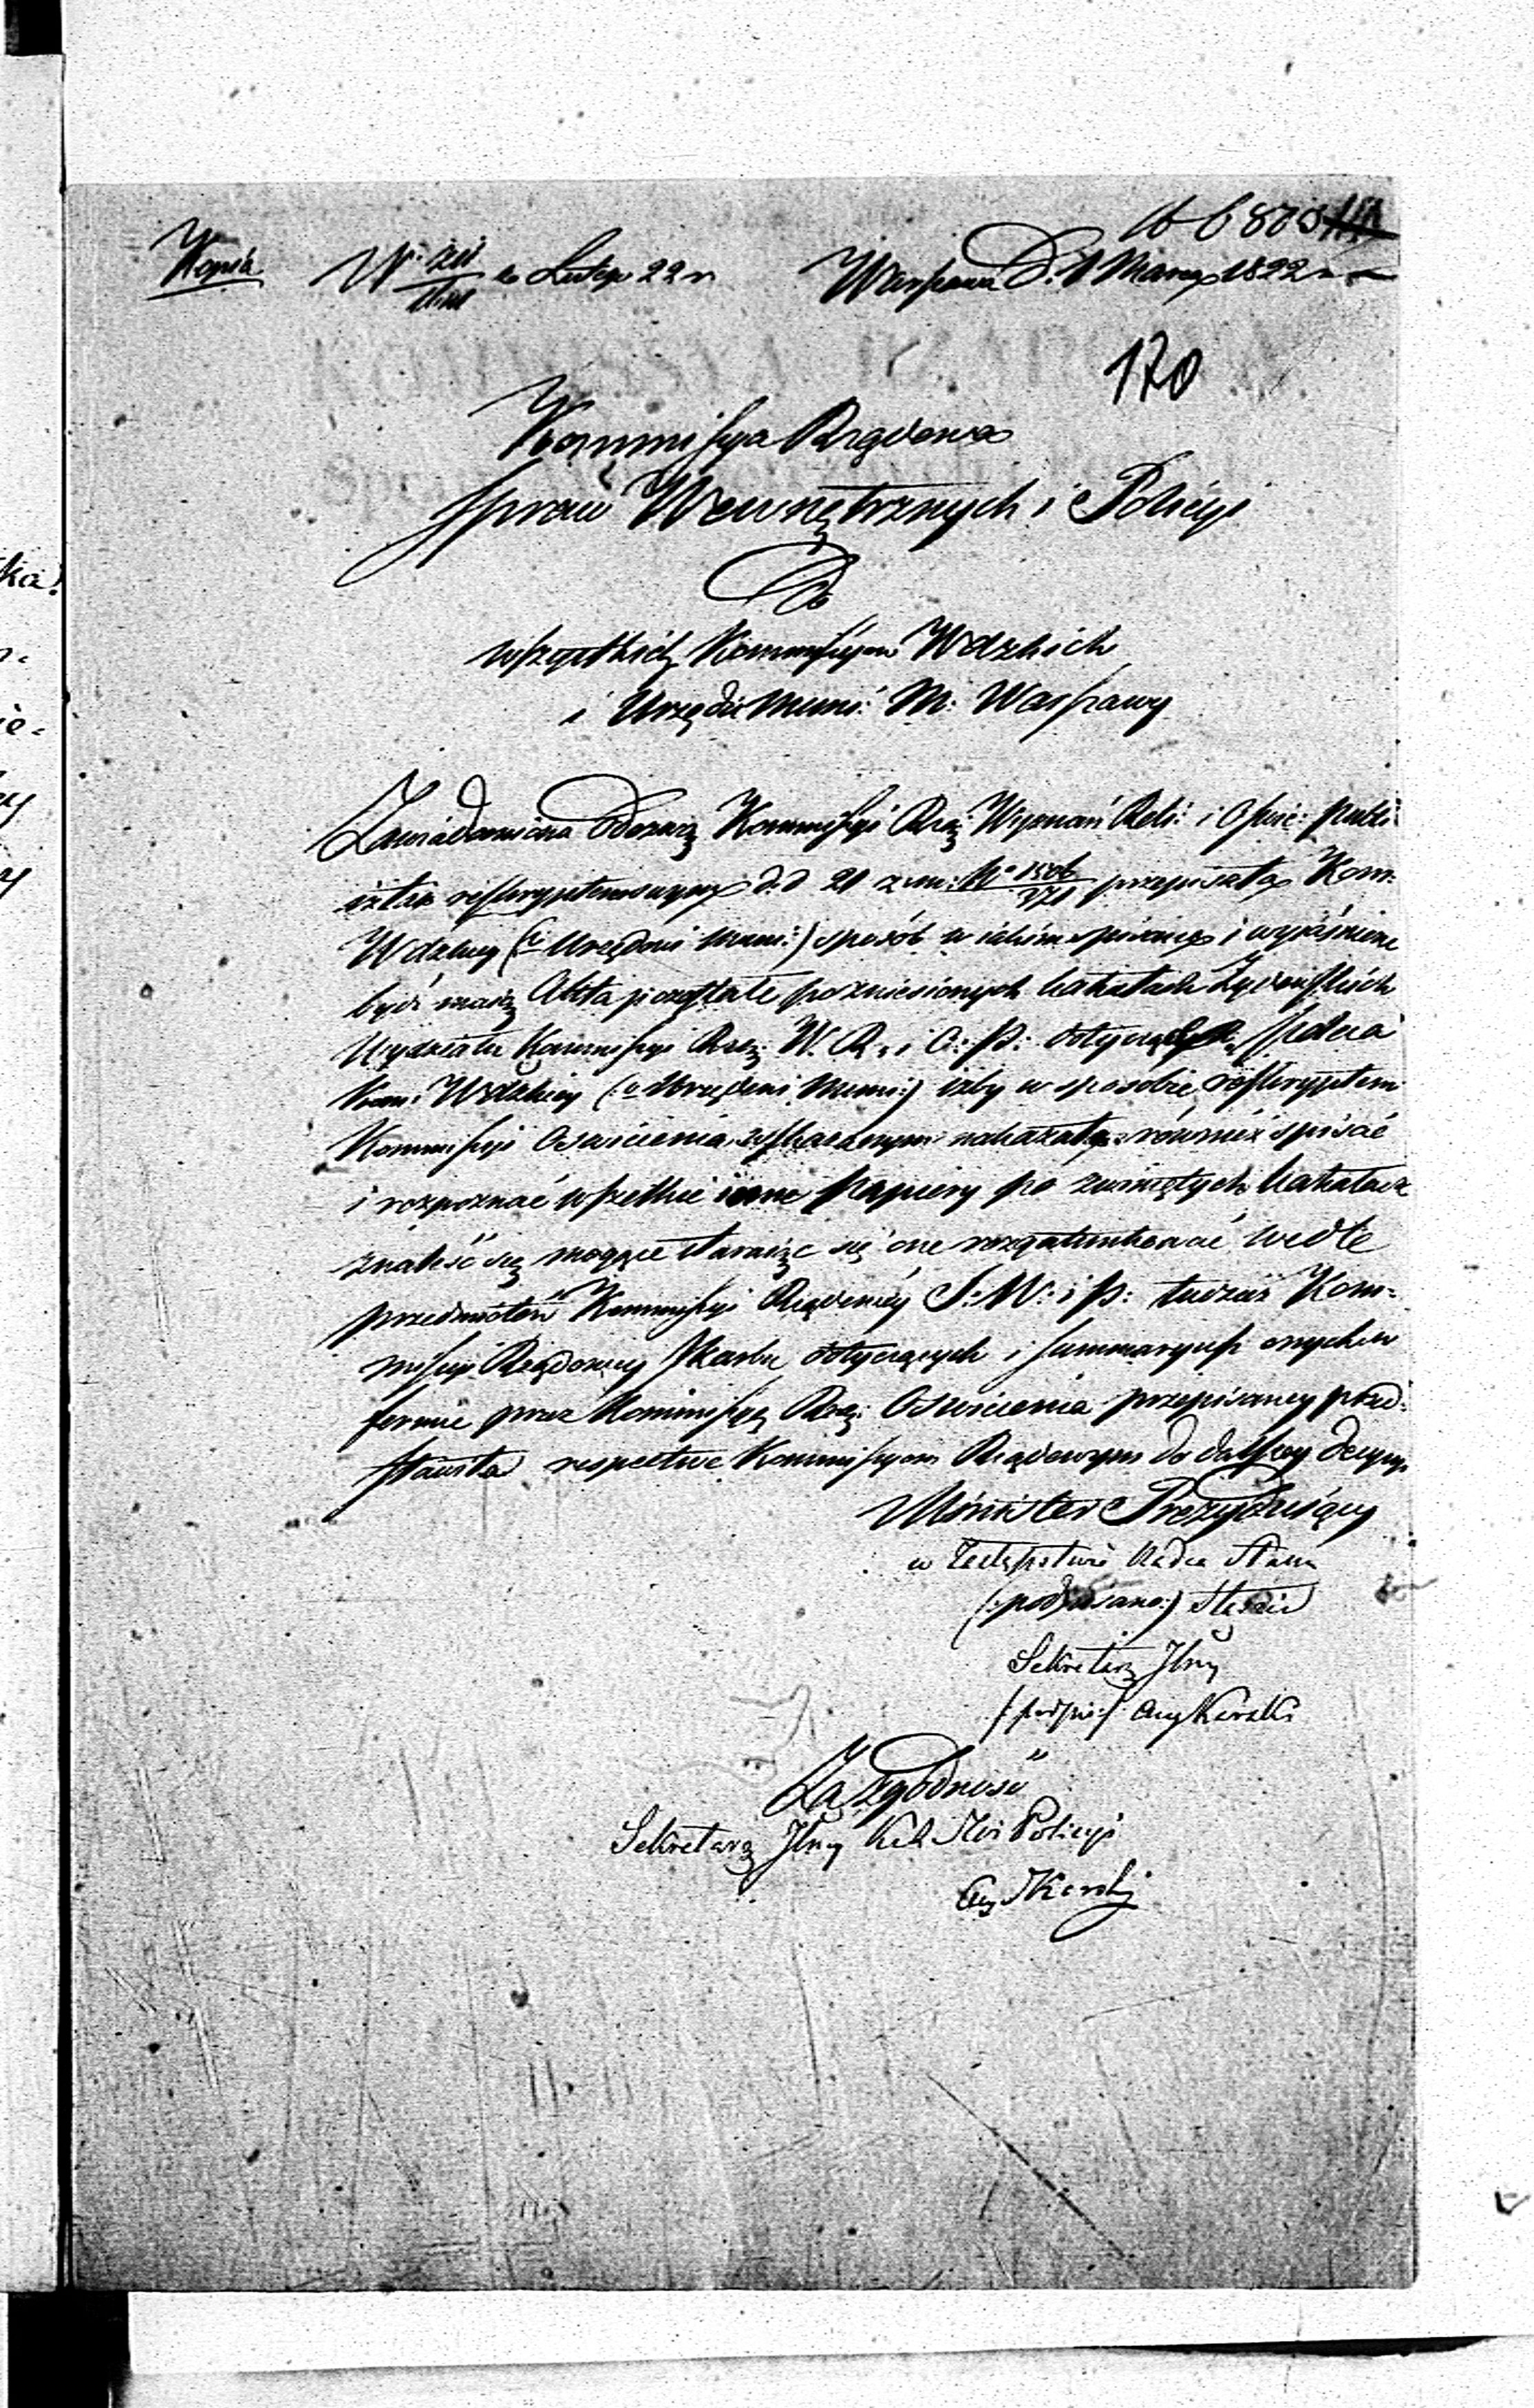 Kopia
N: z Lutego 22 r Warszawa D. 1 Marca 1822 r
170
Kommissya Rządowa
spraw Wewnętrznych i Policyi
Do
wszystkich Kommissyow Wdzkich
i Urzędu Muni: M: Warszawy
Zawiadomiona Odezwą Kommissyi Rzą: Wyznań Reli: i Oświe: Publi:
iż taż reskryptem swym d. d 21 z. m: No 1506/271 przepisała Kom:
Wdzkiey (: Urzędowi Muni:) sposób w iakim spisane i wyiaśnione
być maią Akta pozostałe po zniesionych kahałach Żydowskich
Wydziału Kommissyi Rzą: W. R. i O: P: dotyczące,
Kom: Wdzkiey (: Urzędowi Muni:) iżby w sposobie reskryptem
Kommissyi Oświecenia wskazanym nakazała również spisać
i rozpoznać wszelkie inne papiery po zwiniętych kahałach
znaleść się mogące staraiąc się one rozgatunkować wedle
przedmiotów Kommissyi Rządowéy S: W: i P: tudzież Kom=
missyi Rządowey Skarbu dotyczących i summaryusz onych w
formie przez Kommissyą Rzą: Oświecenia przepisaney przed=
stawiła respective Kommissyom Rządowym do dalszey decyzyi
Minister Prezyduiący
w Zastępstwie Radca Stanu
(: podpisano:) Staszic
Sekretarz Jlny
/: podpis:/ Aug Karski
Za zgodność
Sekretarz Jlny Policyi
Aug Karski